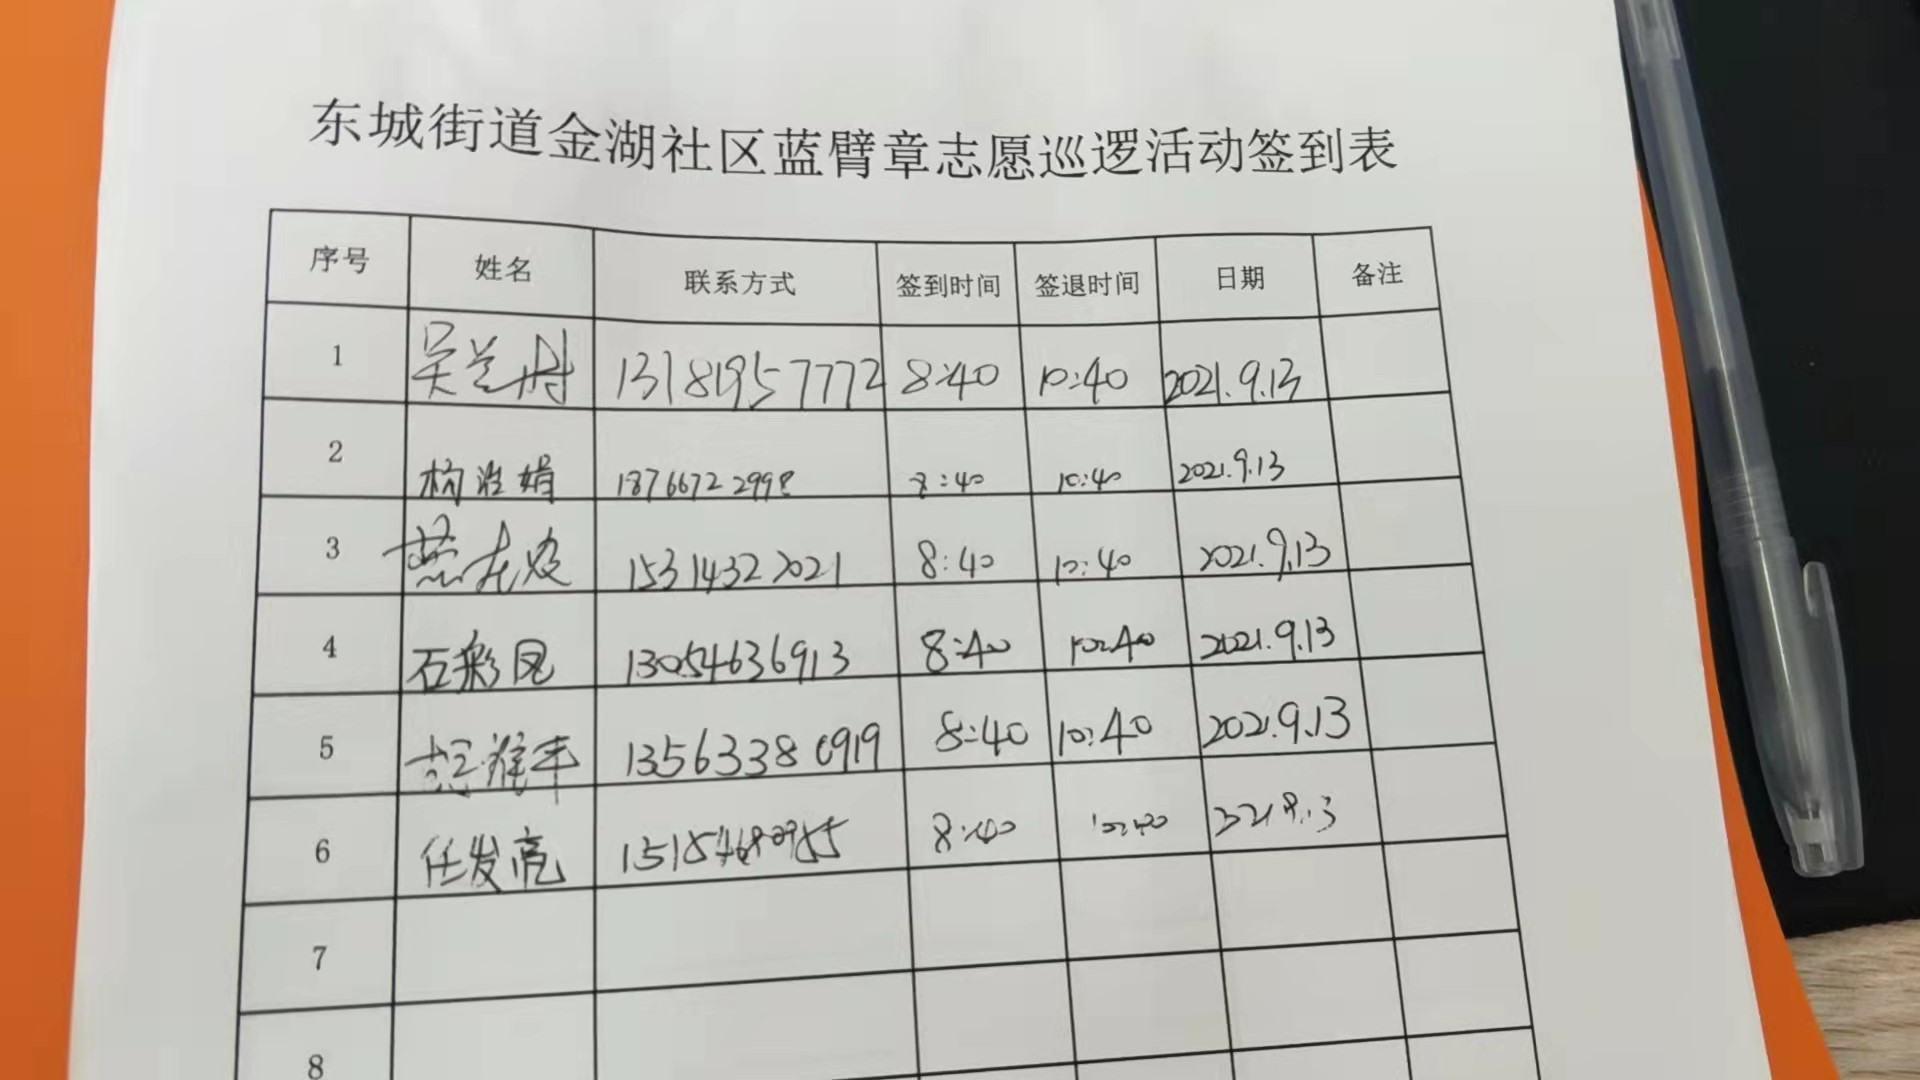 东城街道金湖社区蓝臂章志愿巡逻活动签到表
序号 姓名 联系方式 签到时间 签退时间 日期 备注
1 吴兰丹 13181957772 8:40 10:40 2021.9.13
2 娟 18766722998 8:40 10:40 2021.9.13
3 燕 15314322021 8:40 10:40 2021.9.13
4 石彩凤 13054636913 8:40 10:40 2021.9.13
5 13563380919 8:40 10:40 2021.9.13
6 任发亮 8:40 10:40
7
8